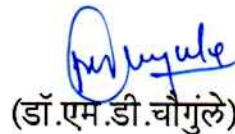 (डॉ.एम.डी.चौगुंले)